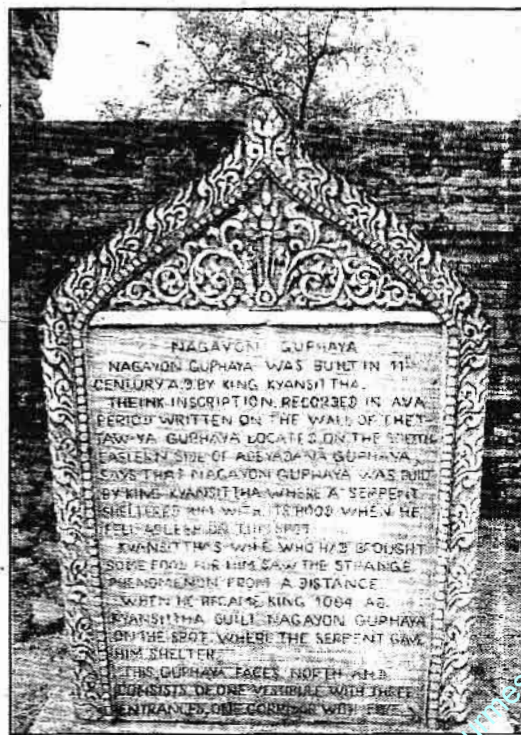 NAGAYON GUPHAYA
NAGAYON GUPHAYA WAS BUILT IN 11TH
CENTURY A.D BY KING KYANSITTHA.
THE INK INSCRIPTION, RECORDED IN AVA
PERIOD WRITTEN ON THE WALL OF THET-
TAW-YA GUPHAYA LOCATED ON THE
EASTERN SIDE OF ABEYADANA GUPHAYA,
SAYS THAT NAGAYON GUPHAYA WAS BUILT
BY KING KYANSITTHA WHERE A SERPENT
SHELTERED HIM WITH ITS HOOD WHEN HE
FELL ASLEEP ON THIS SPOT.
KYANSITTHA'S WIFE WHO HAD BROUGHT
SOME FOOD FOR HIM SAW THE STRANGE
PHENOMENON FROM A DISTANCE
WHEN HE BECAME KING 1084 AD.
KYANSITTHA BUILT NAGAYON GUPHAYA
ON THE SPOT WHERE THE SERPENT GAVE
HIM SHELTER.
THIS GUPHAYA FACES NORTH AND
CONSISTS OF ONE VESTIBULE WITH THREE
ENTRANCES, ONE CORRIDOR WITH FIVE